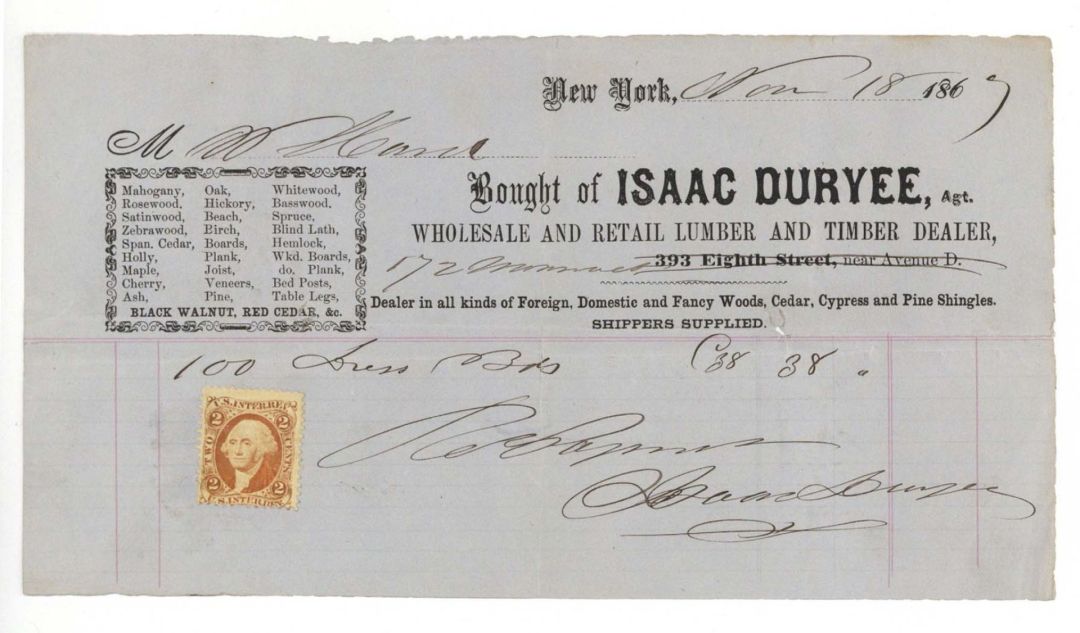 New York, Nov 18 1867
M W Hand
Mahogany, Oak, Whitewood,
Rosewood. Hickory, Basswood.
Satinwood, Beach, Spruce,
Zebrawood, Birch, Blind Lath,
Span. Cedar, Boards, Hemlock,
Holly, Plank, Wkd. Boards,
Maple, Joist, do. Plank,
Cherry, Veneers, Bed Posts,
Ash, Pine, Table Legs,
BLACK WALNUT, RED CEDAR, &c.
Bought of ISAAC DURYEE, Agt.
WHOLESALE AND RETAIL LUMBER AND TIMBER DEALER,
172 393 Eighth Street, near Avenue D.
Dealer in all kinds of Foreign, Domestic and Fancy Woods, Cedar, Cypress and Pine Shingles.
SHIPPERS SUPPLIED.
100 Bds 38 38 "
U.S. INTER. REV.
2 2
TWO CENTS
2 2
U.S. INTER. REV.
Rec Payment
Isaac Duryee